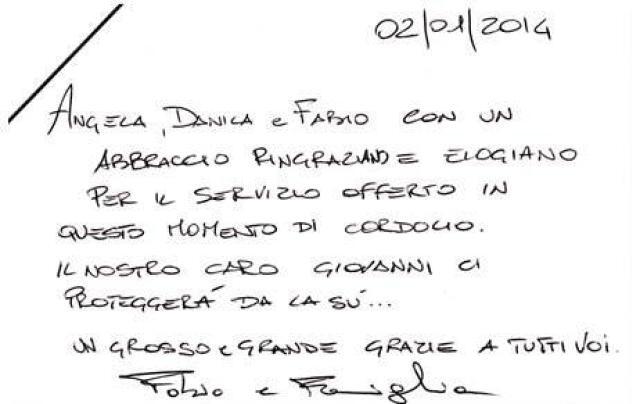 02/01/2014
ANGELA, DANICA e FABIO CON UN
ABBRACCIO RINGRAZIANO E ELOGIANO
PER IL SERVIZIO OFFERTO IN
QUESTO MOMENTO DI CORDOGLIO.
IL NOSTRO CARO GIOVANNI CI
PROTEGGERÀ DA LA SÙ...
UN GROSSO e GRANDE GRAZIE A TUTTI VOI.
Fabio e Famiglia